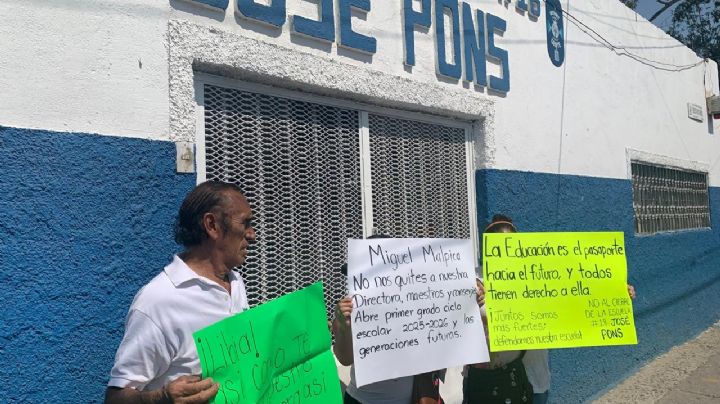 #18
JOSE PONS
¡Lidia!
así como te
Miguel Malpica
No nos quites a nuestra
Directora, maestros y conserje
Abre primer grado ciclo
escolar 2025-2026 y las
generaciones futuras.
La Educación es el pasaporte
hacia el futuro, y todos
tienen derecho a ella.
¡Juntos somos
más fuertes:
defendamos nuestra escuela!
NO AL CIERRE
DE LA ESCUELA
#18 JOSÉ
PONS